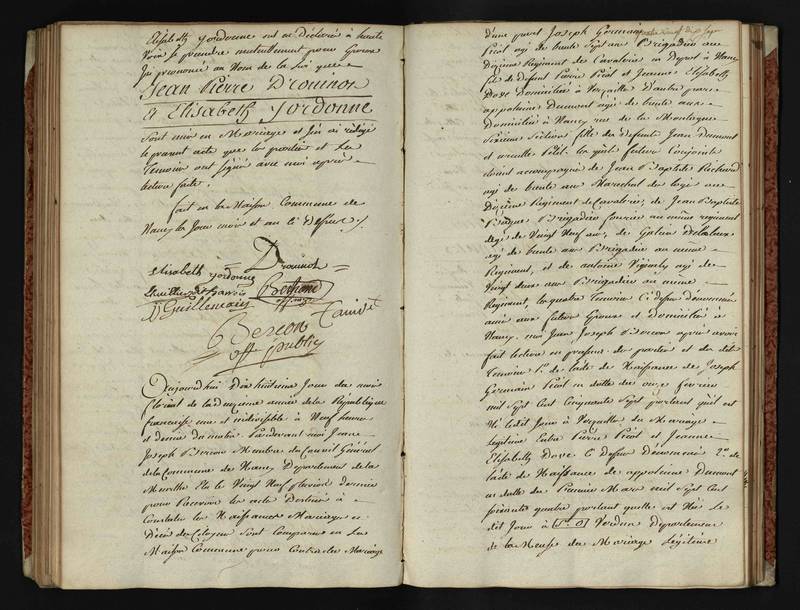 Elisabeth Yordonne ont déclaré à haute
voix se prendre mutuellement pour Epoux
J'ai prononcé au Nom de la Loi que
Jean Pierre Drouinot
et Elisabeth Yordonne
sont unis en Mariage et j'ai rédigé
le présent acte que les parties et les
Temoins ont signé avec moi après
lecture faite.
fait en la Maison Commune de
Nancy les Jour mois et an ci dessus
Drouinot
elisabeth yordonne
Guillenain
Berson
off public
Aujourd'hui Dix huitieme Jour du mois
floréal de la deuxieme année de la République
française une et indivisible à Neuf heures
et demie du matin. Pardevant moi Jean
Joseph Berson Membre du Conseil Général
de la Commune de Nancy Département de la
Meurthe Elu le Vingt Neuf pluviose dernier
pour Recevoir les acte Destinés à
Constater les Naissances Mariages et
Décès des Citoyens Sont Comparus en la
Maison Commune pour Contracter Mariage
d'une part Joseph Germain
Picot agé de trente Sept ans Brigadier au
Dixieme Regiment de Cavalerie en Depot à Nancy
fils de défunt Pierre Picot et Jeanne Elisabeth
Dove Domiciliés à Versailles d'autre part
appolaine Dumont agée de trente ans
Domiciliée à Nancy rue de la Montagne
Sixieme Section fille des défunts Jean Dumont
et Petit. les quels futurs Conjoints
étant accompagnés de Jean Baptiste Richard
agé de trente ans Marechal des logis au
Dixieme Regiment de Cavalerie, de Jean Baptiste
Brigadier fourier au même regiment
agé de Vingt Neuf ans, de
agé de trente ans Brigadier au même
Regiment, et de antoine agé de
Vingt deux ans Brigadier au même
Regiment, les quatre Temoins ci dessus dénommés
amis aux futurs Epoux et Domiciliés à
Nancy. moi Jean Joseph Berson après avoir
fait lecture en présence des parties et des dits
Temoins 1°. de l'acte de Naissance de Joseph
Germain Picot en datte du onze fevrier
mil Sept Cent Cinquante Sept portant qu'il est
Né ledit Jour à Versailles du Mariage
legitime Entre Pierre Picot et Jeanne
Elisabeth Dove ci dessus dénommés 2°. de
l'acte de Naissance de appolaine Dumont
en datte du Premier Mars mil Sept Cent
soixante quatre portant quelle est Née le
dit Jour à Verdun Département
de la Meuse du Mariage Légitime